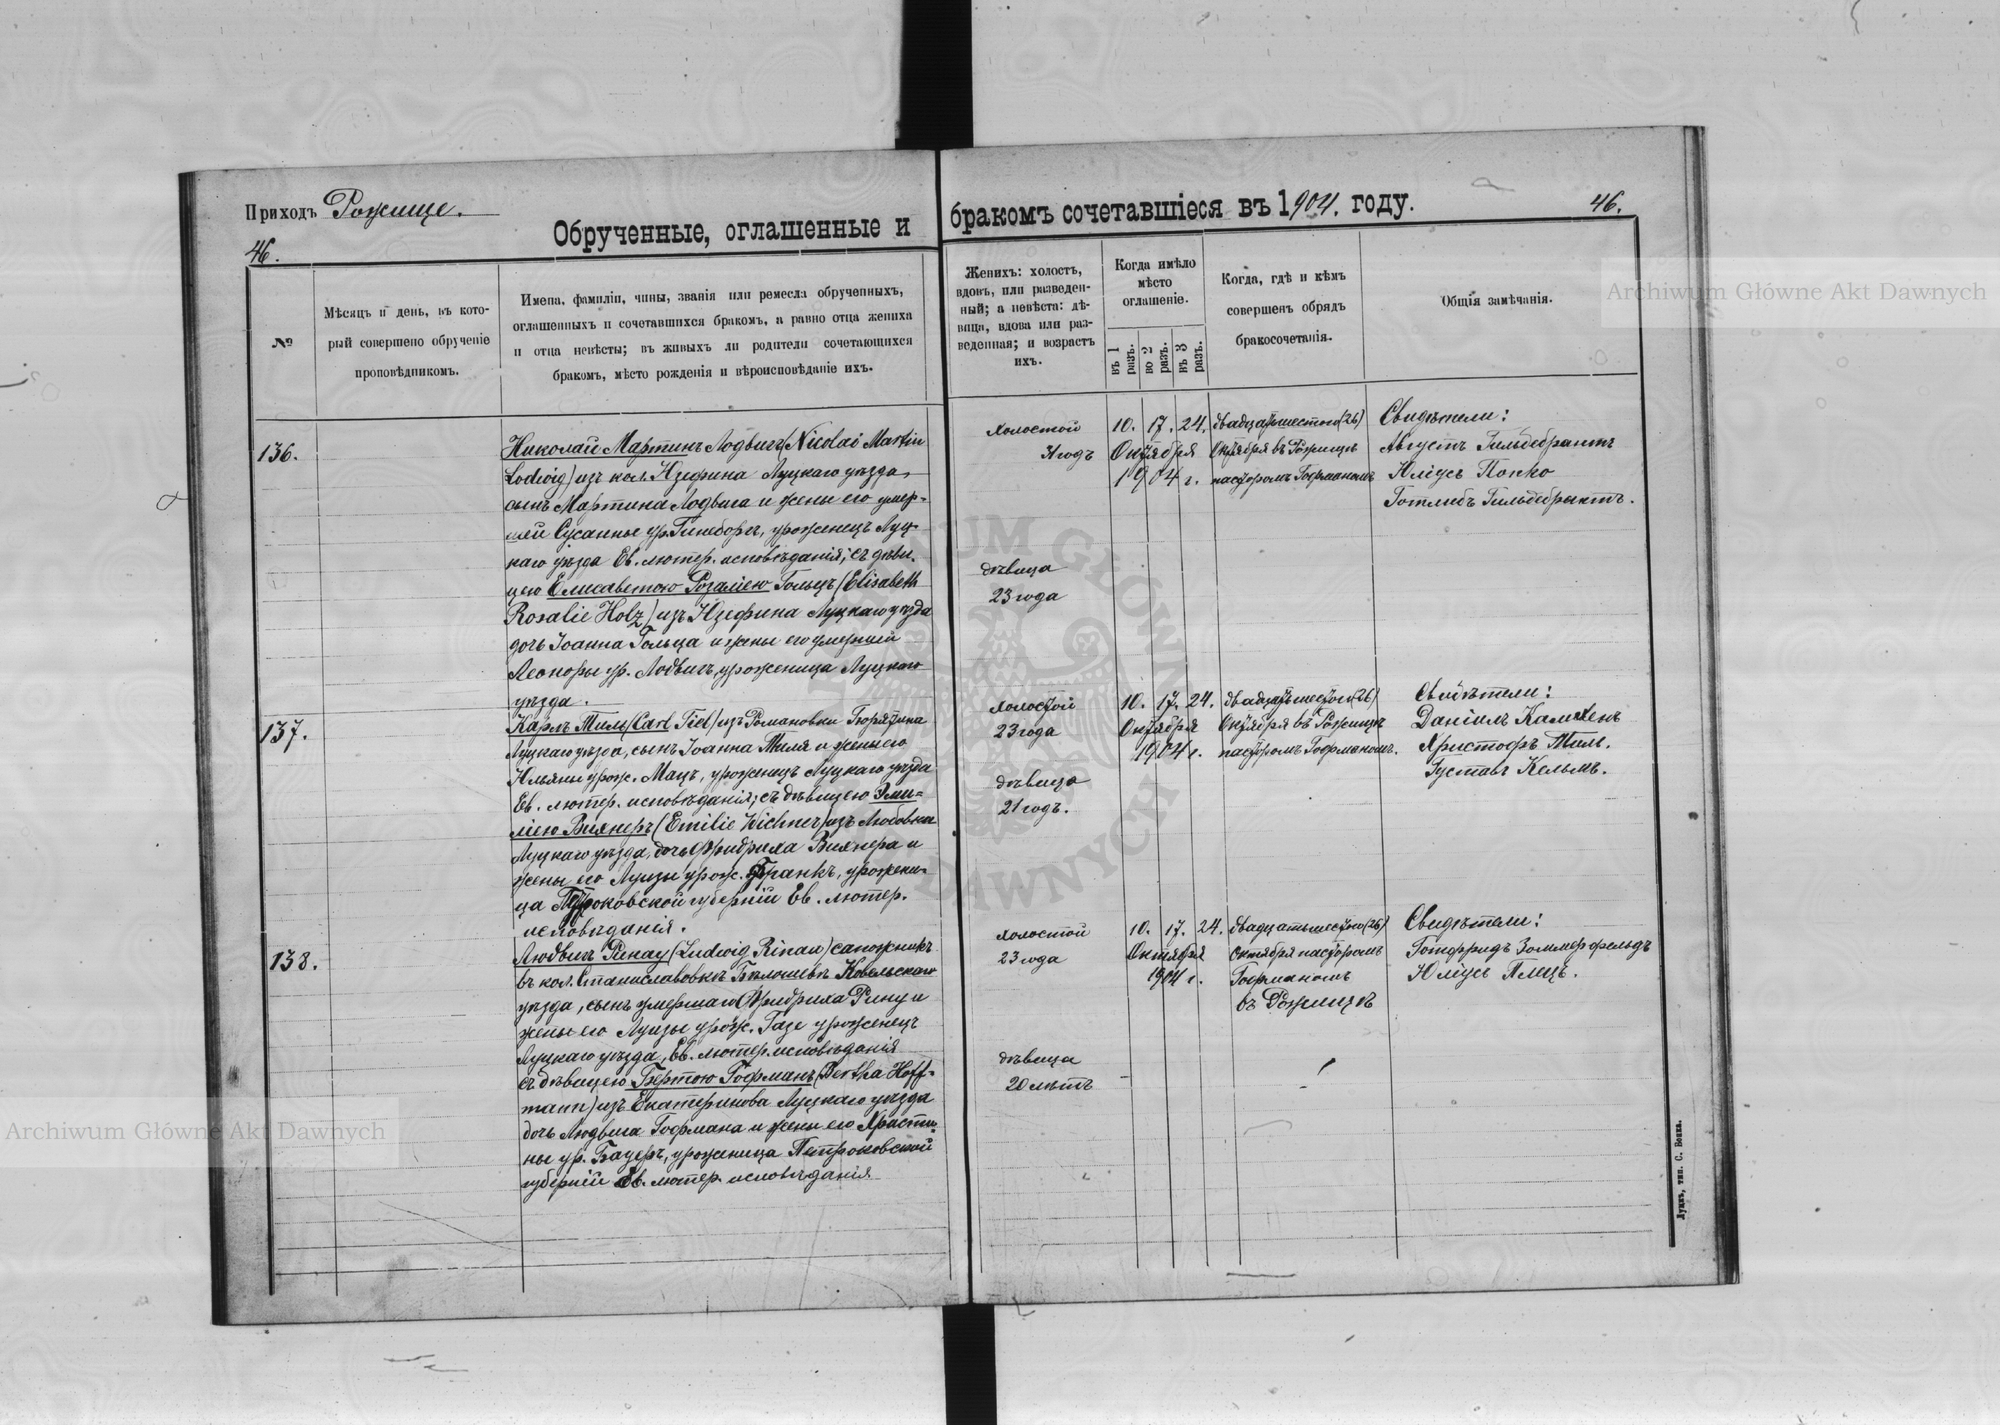 Приходъ Рожище.
Обрученные, оглашенные и
бракомъ сочетавшіеся въ 1904. году.
46.
46.
№
Мѣсяцъ и день, въ кото-
рый совершено обрученіе
проповѣдникомъ.
Имена, фамиліи, чины, званія или ремесла обрученныхъ,
оглашенныхъ и сочетавшихся бракомъ, а равно отца жениха
и отца невѣсты; въ живыхъ ли родители сочетающихся
бракомъ, мѣсто рожденія и вѣроисповѣданіе ихъ.
Женихъ: холостъ,
вдовъ, или разведен-
ный; а невѣста: дѣ-
вица, вдова или раз-
веденная; и возрастъ
ихъ.
Когда имѣло
мѣсто
оглашеніе.
въ 1 разъ.
во 2 разъ.
въ 3 разъ.
Когда, гдѣ и кѣмъ
совершенъ обрядъ
бракосочетанія.
Общія замѣчанія.
136.
Николай Мартинъ Лодвигъ (Nicolai Martin
Lodwig) изъ кол. Юзефина Луцкаго уѣзда,
сынъ Мартина Лодвига и жены его умер-
шей Сусанны ур. Гинборгъ, уроженецъ Луц-
каго уѣзда Ев. лютер. исповѣданія; съ дѣви-
цею Елисаветою Розаліею Гольцъ (Elisabeth
Rosalie Holz) изъ Юзефина Луцкаго уѣзда
дочь Іоанна Гольца и жены его умершей
Леоноры ур. Лодвигъ, уроженица Луцкаго
уѣзда.
холостой
31 годъ
дѣвица
23 года
10. 17. 24.
Октября
1904 г.
двадцатьшестого (26)
Октября въ Рожищѣ
пасторомъ Гофманомъ
Свидѣтели:
Августъ Гильдебрантъ
Юліусъ Попко
Готлибъ Гильдебрантъ.
137.
Карлъ Тиль (Carl Tiel) изъ Романовки
Луцкаго уѣзда, сынъ Іоанна Тиля и жены его
Юльяны урож. Мацъ, уроженецъ Луцкаго уѣзда
Ев. лютер. исповѣданія; съ дѣвицею Эми-
ліею Вихнеръ (Emilie Wichner) изъ Любовки
Луцкаго уѣзда, дочь Фридриха Вихнера и
жены его Луизы урож. Франкъ, урожени-
ца Петроковской губерніи Ев. лютер.
исповѣданія.
холостой
23 года
дѣвица
21 годъ.
10. 17. 24.
Октября
1904 г.
двадцатьшестого (26)
Октября въ Рожищѣ
пасторомъ Гофманомъ.
Свидѣтели:
Даніилъ
Христофъ Тиль.
Густавъ Кельмъ.
138.
Людвигъ Ринау (Ludwig Rinau) сапожникъ
въ кол. Станиславовкѣ Ковельскаго
уѣзда, сынъ умершаго Фридриха Ринау и
жены его Луизы урож. Газе уроженецъ
Луцкаго уѣзда, Ев. лютер. исповѣданія
съ дѣвицею Бертою Гофманъ (Bertha Hoff-
mann) изъ Екатеринова Луцкаго уѣзда
дочь Людвига Гофмана и жены его Христи-
ны ур. Бауеръ, уроженица Петроковской
губерніи Ев. лютер. исповѣданія.
холостой
23 года
дѣвица
20 лѣтъ
10. 17. 24.
Октября
1904 г.
двадцатьшестого (26)
Октября пасторомъ
Гофманомъ
въ Рожищѣ
Свидѣтели:
Готфридъ Зоммерфельдъ
Юліусъ Плецъ.
Луцкъ, тип. С. Бонка.
Archiwum Główne Akt Dawnych
Archiwum Główne Akt Dawnych